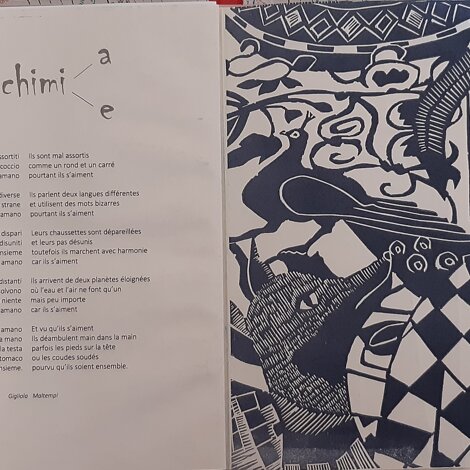 chimi
a
e
ssortiti Ils sont mal assortis
coccio comme un rond et un carré
amano pourtant ils s'aiment
diverse Ils parlent deux langues différentes
strane et utilisent des mots bizarres
amano pourtant ils s'aiment
dispari Leurs chaussettes sont dépareillées
disuniti et leurs pas désunis
nsieme toutefois ils marchent avec harmonie
amano car ils s'aiment
distanti Ils arrivent de deux planètes éloignées
olvono où l'eau et l'air ne font qu'un
niente mais peu importe
amano car ils s'aiment
amano Et vu qu'ils s'aiment
a mano Ils déambulent main dans la main
la testa parfois les pieds sur la tête
tomaco ou les coudes soudés
nsieme. pourvu qu'ils soient ensemble.
Gigliola Maltempi